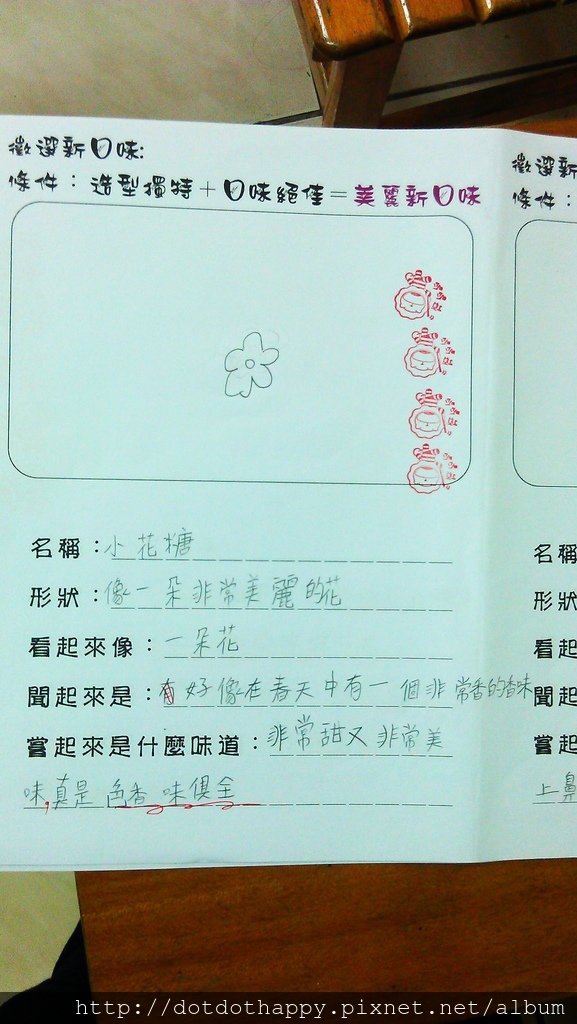 徵選新口味:
條件：造型獨特＋口味絕佳＝美麗新口味
名稱：小花糖
形狀：像一朵非常美麗的花
看起來像：一朵花
聞起來是：有好像在春天中有一個非常香的香味
嘗起來是什麼味道：非常甜又非常美
味,真是色香味俱全
徵選新
條件：
名稱
形狀
看起
聞起
嘗起
上鼻
http://dotdothappy.pixnet.net/album